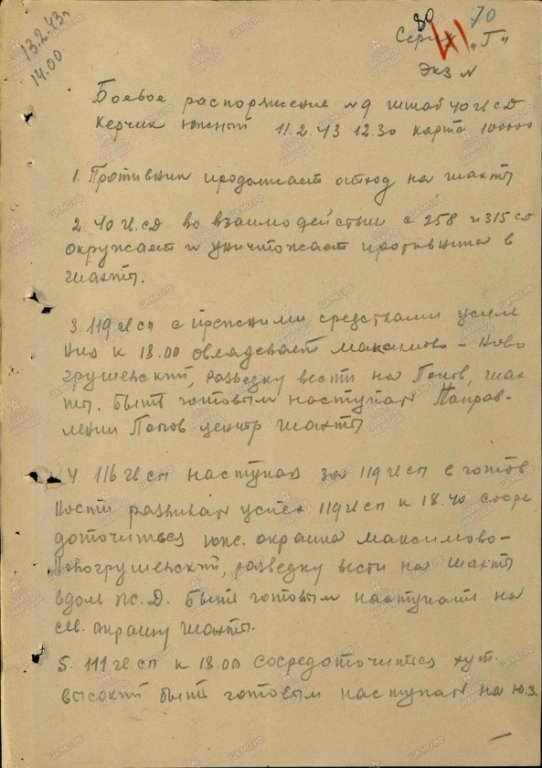 13.2.43г
14.00
80
41
70
Серия "Г"
Экз N
Боевое распоряжение №9 штаб 40 гв сд
Керчик южный 11.2.43 12.30 карта 100000
1. Противник продолжает отход на шахты
2. 40 гв. сд во взаимодействии с 258 и 315 сд
окружает и уничтожает противника в
шахты.
3. 119 гв сп с прежними средствами усиле
ния к 18.00 овладевает Максимово - Ново
грушевский, разведку вести на Попов, шах
ты. Быть готовым наступать Направ-
лении Попов центр шахты
4. 116 гв сп наступая за 119 гв сп в готов
ности развивая успех 119 гв сп к 18.40 сосре
доточиться юж. окраина Максимово-
Новогрушевский, разведку вести на шахты
вдоль ж.д. Быть готовым наступать на
сев. окраину шахты.
5. 111 гв сп к 18.00 сосредоточится хут.
высокий быть готовым наступать на юз.